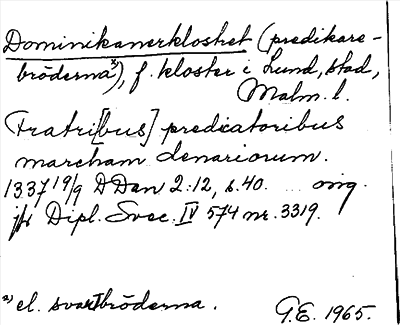 Dominikanerklostret (predikare-
bröderna²⁾), f. kloster i Lund, stad,
Malm. l.
Fratri[bus] predicatoribus
marcham denariorum.
1337 19/9 DDan 2:12, s. 40. ... orig.
jfr Dipl. Svec. IV 574 nr. 3319.
²⁾ el. svartbröderna.
G.E. 1965.